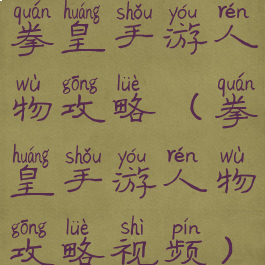 quán huáng shǒu yóu rén
拳皇手游人
wù gōng lüè quán
物攻略(拳
huáng shǒu yóu rén wù
皇手游人物
gōng lüè shì pín
攻略视频)